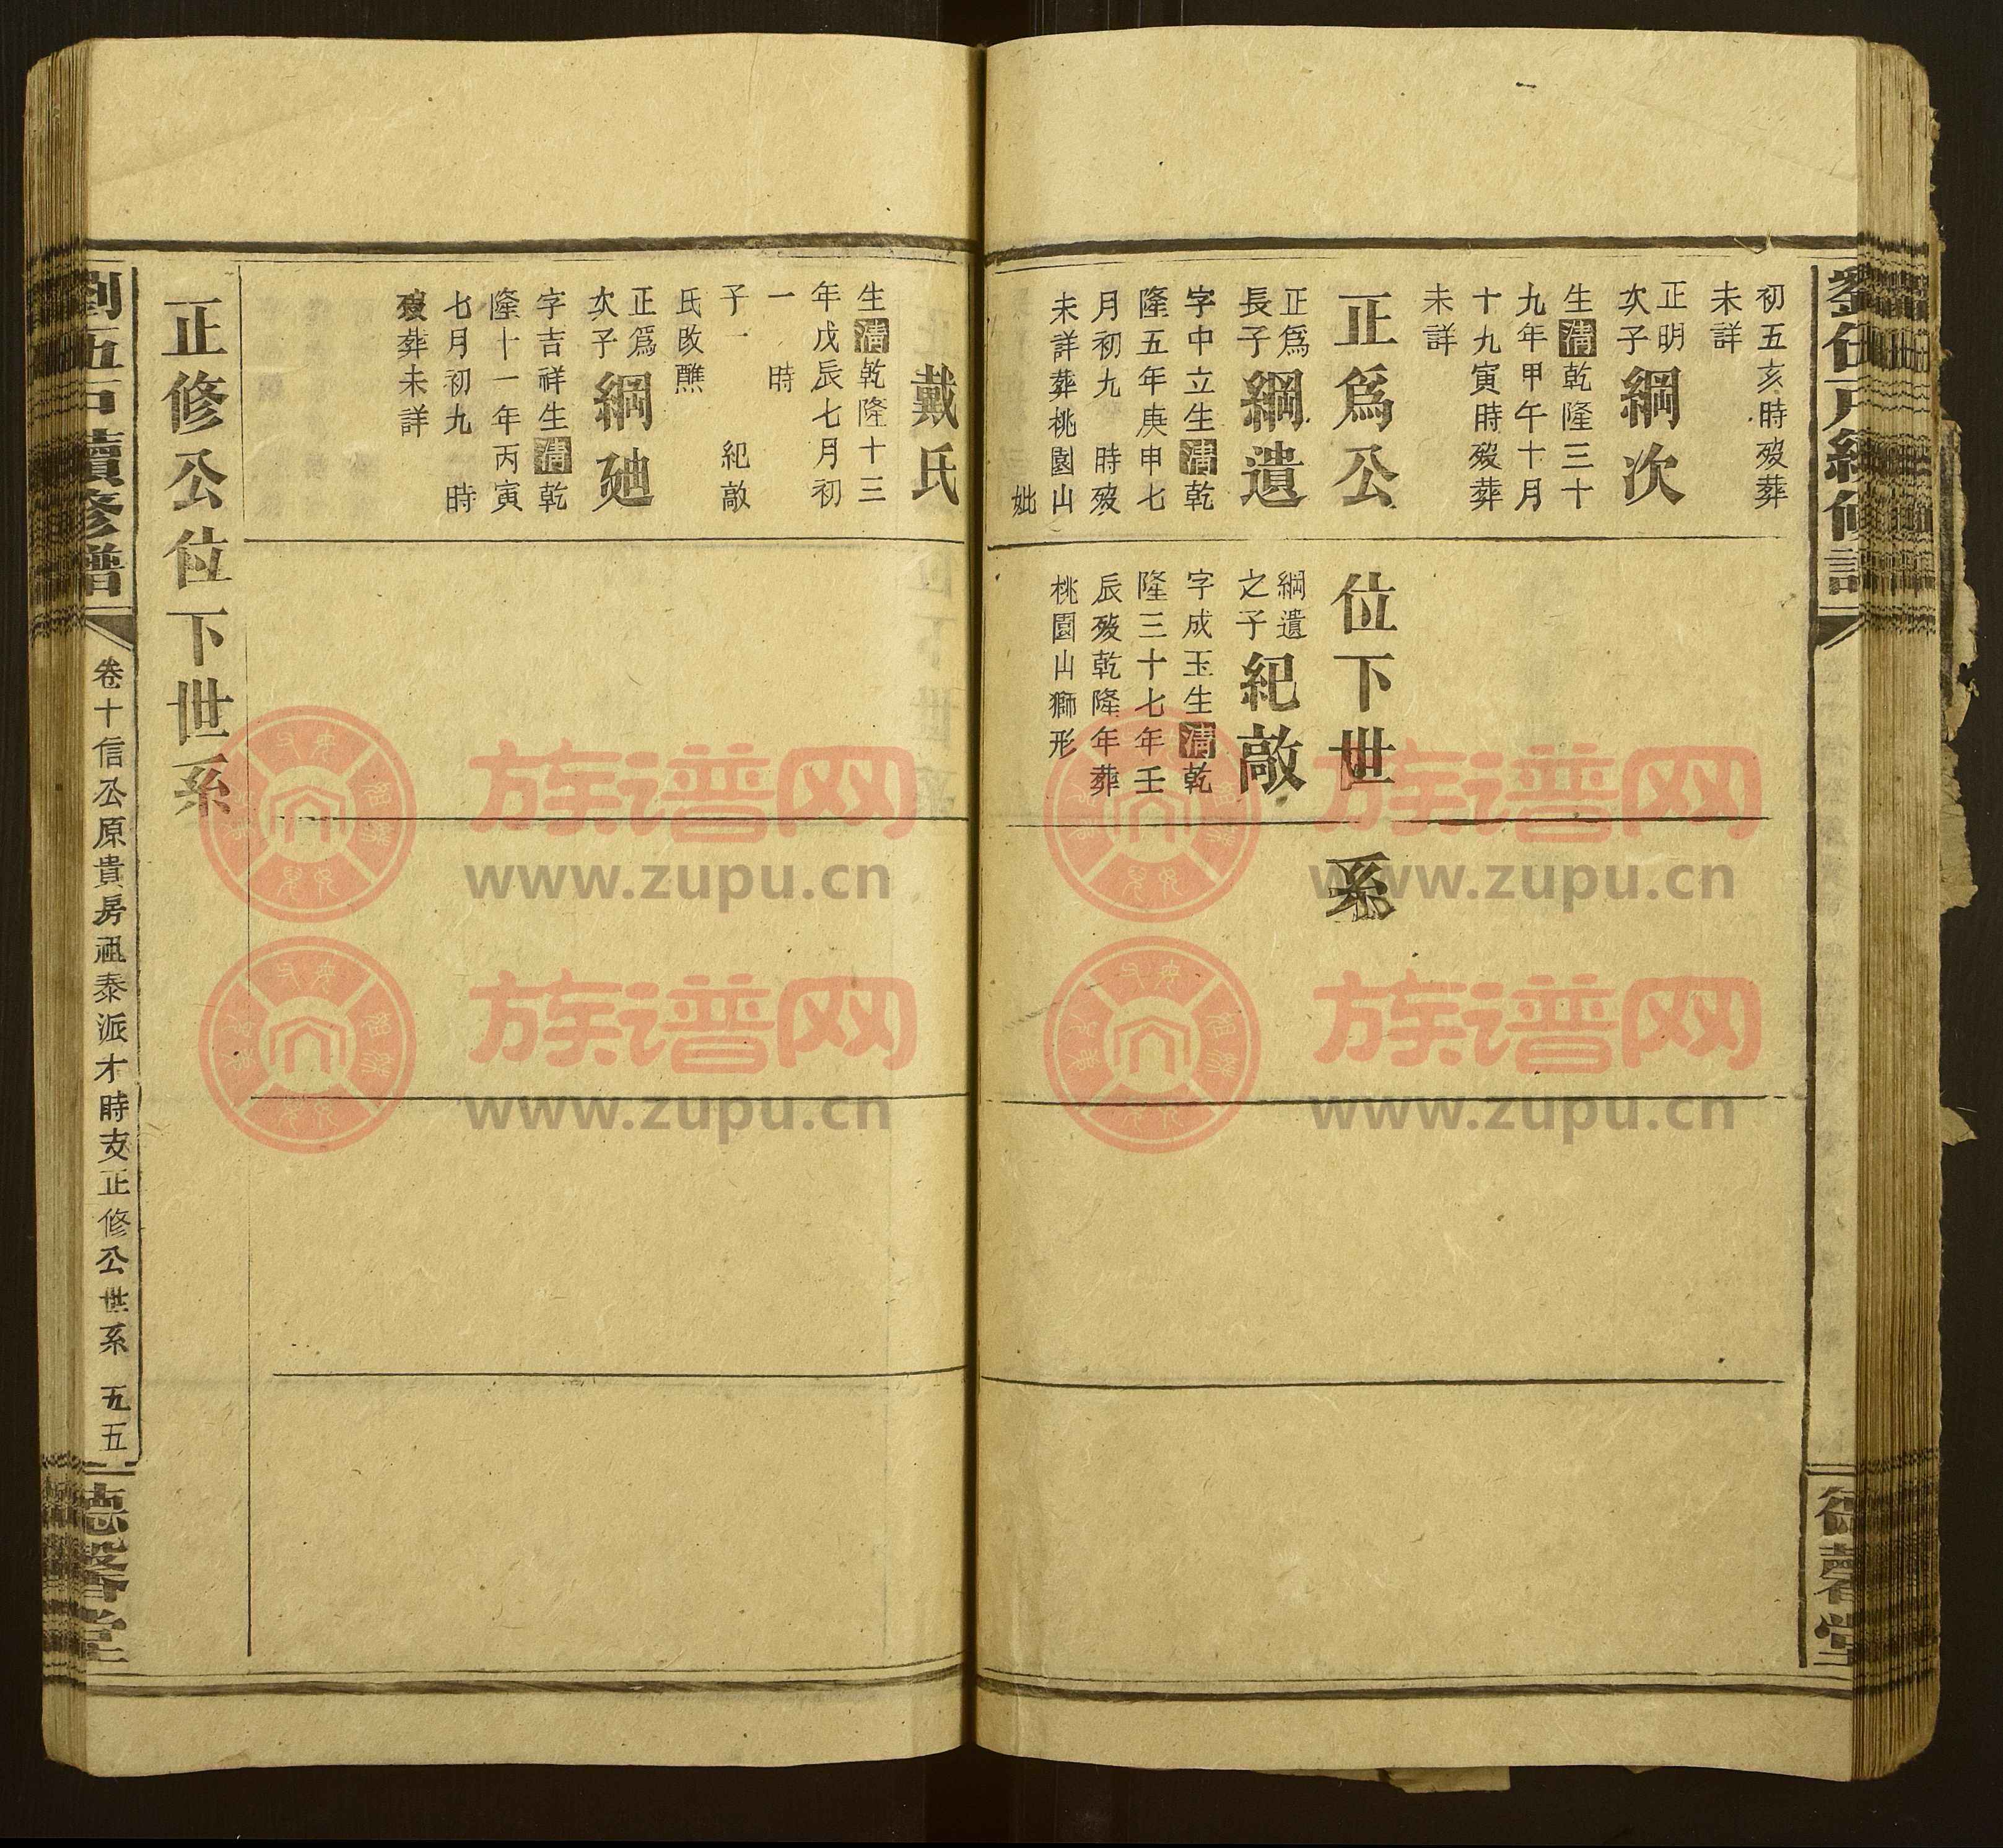 初五亥時歿葬
未詳
正明
次子
綱次
生清乾隆三十
九年甲午十月
十九寅時歿葬
未詳
正爲公
位下世
系
正爲
長子
綱遺
字中立生清乾
隆五年庚申七
月初九 時歿
未詳葬桃園山
妣
綱遺
之子
紀敵
字成玉生清乾
隆三十七年壬
辰歿乾隆年葬
桃園山獅形
戴氏
生清乾隆十三
年戊辰七月初
一 時
子一 紀敵
氏改醮
正爲
次子
綱
字吉祥生清乾
隆十一年丙寅
七月初九 時
歿葬未詳
正修公位下世系
劉伍戶續修譜
卷十信公原貴房祖泰派才時支正修公世系 五五
德馨堂
劉伍戶續修譜
德馨堂
族谱网
www.zupu.cn
族谱网
www.zupu.cn
族谱网
www.zupu.cn
族谱网
www.zupu.cn